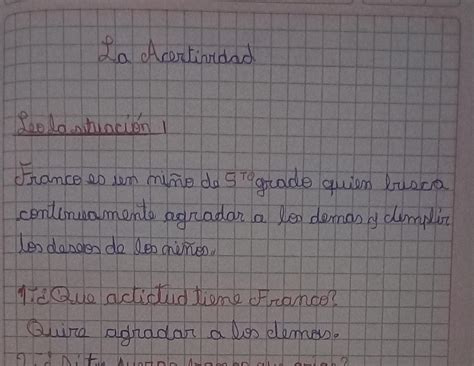 La Acertividad
Leo la situación 1
Franco es un niño de 5TO grado quien busca
continuamente agradar a los demas y cumplir
los deseos de los niños.
1. ¿Que actictud tiene Franco?
Quire agradar a los demas.